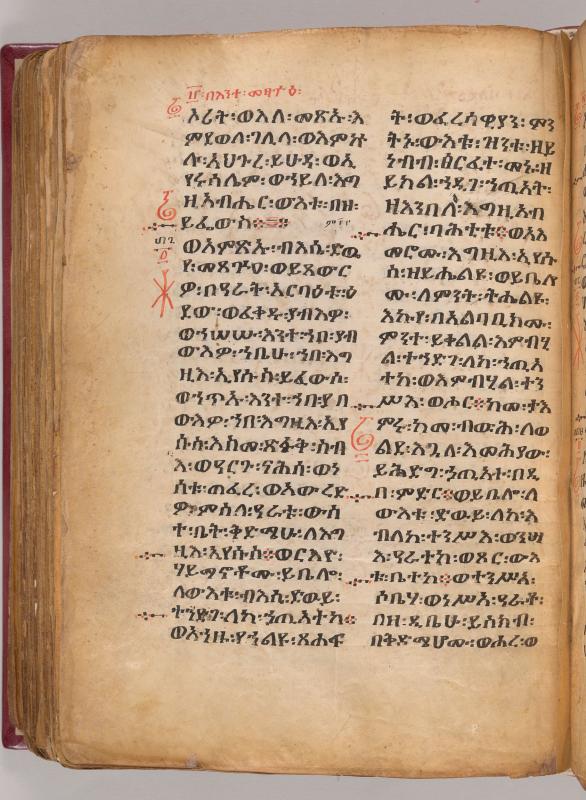 ፲፫፡በእንተ፡መፃጉዕ፡
ኦሪት፡ወእለ፡መጽኡ፡እ
ምደወለ፡ገሊላ፡ወእምኵ
ሉ፡አህጉረ፡ይሁዳ፡ወኢ
የሩሳሌም፡ወኀይለ፡እግ
ዚአብሔር፡ውእቱ፡በዘ፡
ይፌውስ፨
ወአምጽኡ፡ብእሴ፡ድዉ
የ፡መጻጕዐ፡ወይጸውር
ዎ፡በዓራት፡አርባዕቱ፡ዕ
ደው፡ወፈቀዱ፡ያብእዎ፡
ወኀሠሡ፡እንተ፡ኀበ፡ያብ
ውእዎ፡ኀቤሁ፡ኀበ፡እግ
ዚእ፡ኢየሱስ፡ይፈውስ፡
ወኀጥኡ፡እንተ፡ኀበ፡ያበ
ውእዎ፡ኀበ፡እግዚእ፡ኢየ
ሱስ፡እስመ፡ጽፉቅ፡ሰብ
እ፡ወዓርጉ፡ናሕሰ፡ወነ
ሰቱ፡ጠፈረ፡ወአውረድ
ዎ፡ምስለ፡ዓራቱ፡ውስ
ተ፡ቤት፡ቅድሜሁ፡ለእግ
ዚእ፡ኢየሱስ፨ወርእዮ፡
ሃይማኖቶሙ፡ይቤሎ፡
ለውእቱ፡ብእሲ፡ድዉይ፡
ተኀድገ፡ለከ፡ኀጢአትከ፨
ወአኀዙ፡የኀልዩ፡ጸሐፍ
ት፡ወፈረሳዊያን፡ምን
ትኑ፡ውእቱ፡ዝንቱ፡ዘይ
ነብብ፡ፅርፈተ፡መኑ፡ዘ
ይክል፡ኀዲገ፡ኀጢአት፡
ዘእንበለ፡እግዚአብ
ሔር፡ባሕቲቱ፨ወአእ
መሮሙ፡እግዚእ፡ኢየሱ
ስ፡ዘይሔልዩ፡ወይቤሎ
ሙ፡ለምንት፡ትሔልዩ፡
እኩየ፡በአልባቢክሙ፡
ምንተ፡ይቀልል፡እምብሂ
ል፡ተኀድገ፡ለከ፡ኀጢአ
ትከ፡ወእምብሂል፡ተን
ሥእ፡ወሖር፨ከመ፡ታእ
ምሩ፡ከመ፡ብውሕ፡ለወ
ልደ፡እጓለ፡እመሕያው፡
ይሕድግ፡ኀጢአተ፡በዲ
በ፡ምድር፨ወይቤሎ፡ለ
ውእቱ፡ድውይ፡ለከ፡እ
ብለከ፡ተንሥእ፡ወንሣ
እ፡ዓራተከ፡ወጾር፡ውእ
ቱ፡ቤተከ፨ወተንሥአ፡
ሶቤሃ፡ወነሥአ፡ዓራቶ፡
በዘ፡ዲቤሁ፡ይሰክብ፡
በቅድሜሆሙ፡ወሖረ፡ወ